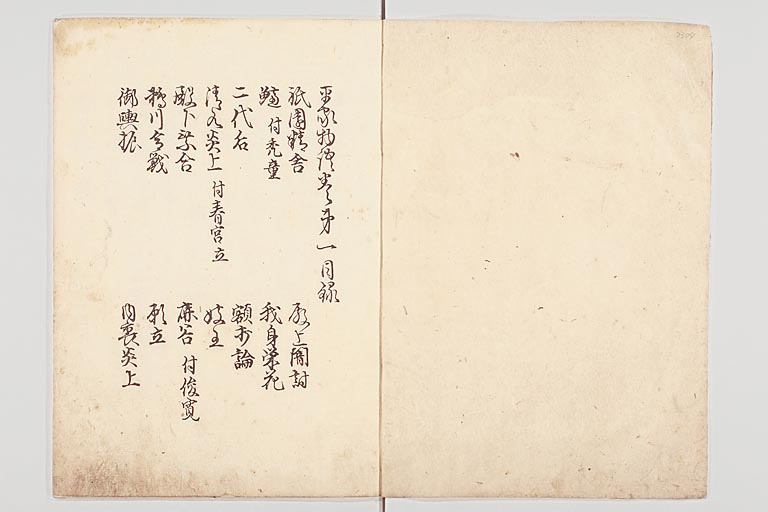 平家物語巻第一目録
祇園精舎　殿上闇討
鱸 付禿童　我身栄花
二代后　額打論
清水炎上 付春宮立　妓王
殿下乗合　鹿谷 付俊寛
鵜川合戦　願立
御輿振　内裏炎上